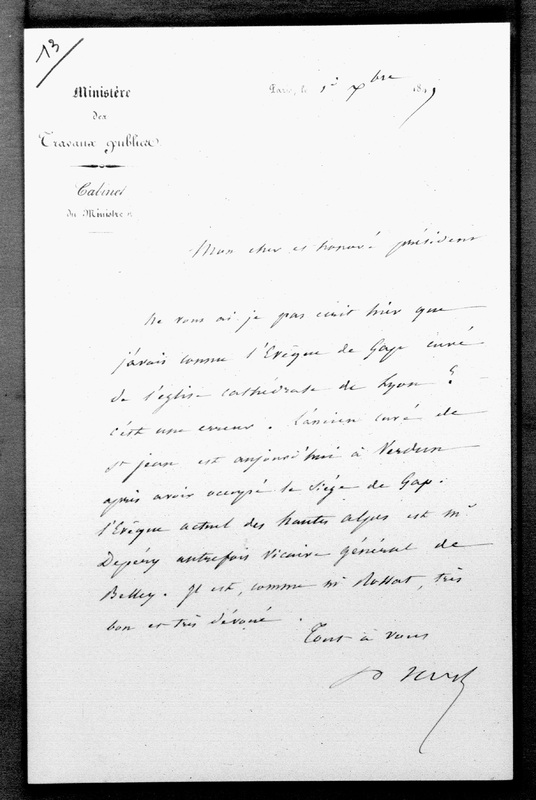 13
Ministère
des
Travaux publics.
Cabinet
du Ministre.
Paris, le 1er Xbre 184
Mon cher et honoré président
Ne vous ai je pas écrit hier que
j'avais connu l'Evêque de Gap curé
de l'église cathédrale de Lyon ?
C'est une erreur. L'ancien curé de
St jean est aujourd'hui à Verdun
après avoir occupé le siège de Gap.
l'Evêque actuel des hautes alpes est mr
Depéry autrefois Vicaire général de
Belley. Il est, comme mr Rossat, très
bon et très dévoué.
Tout à vous